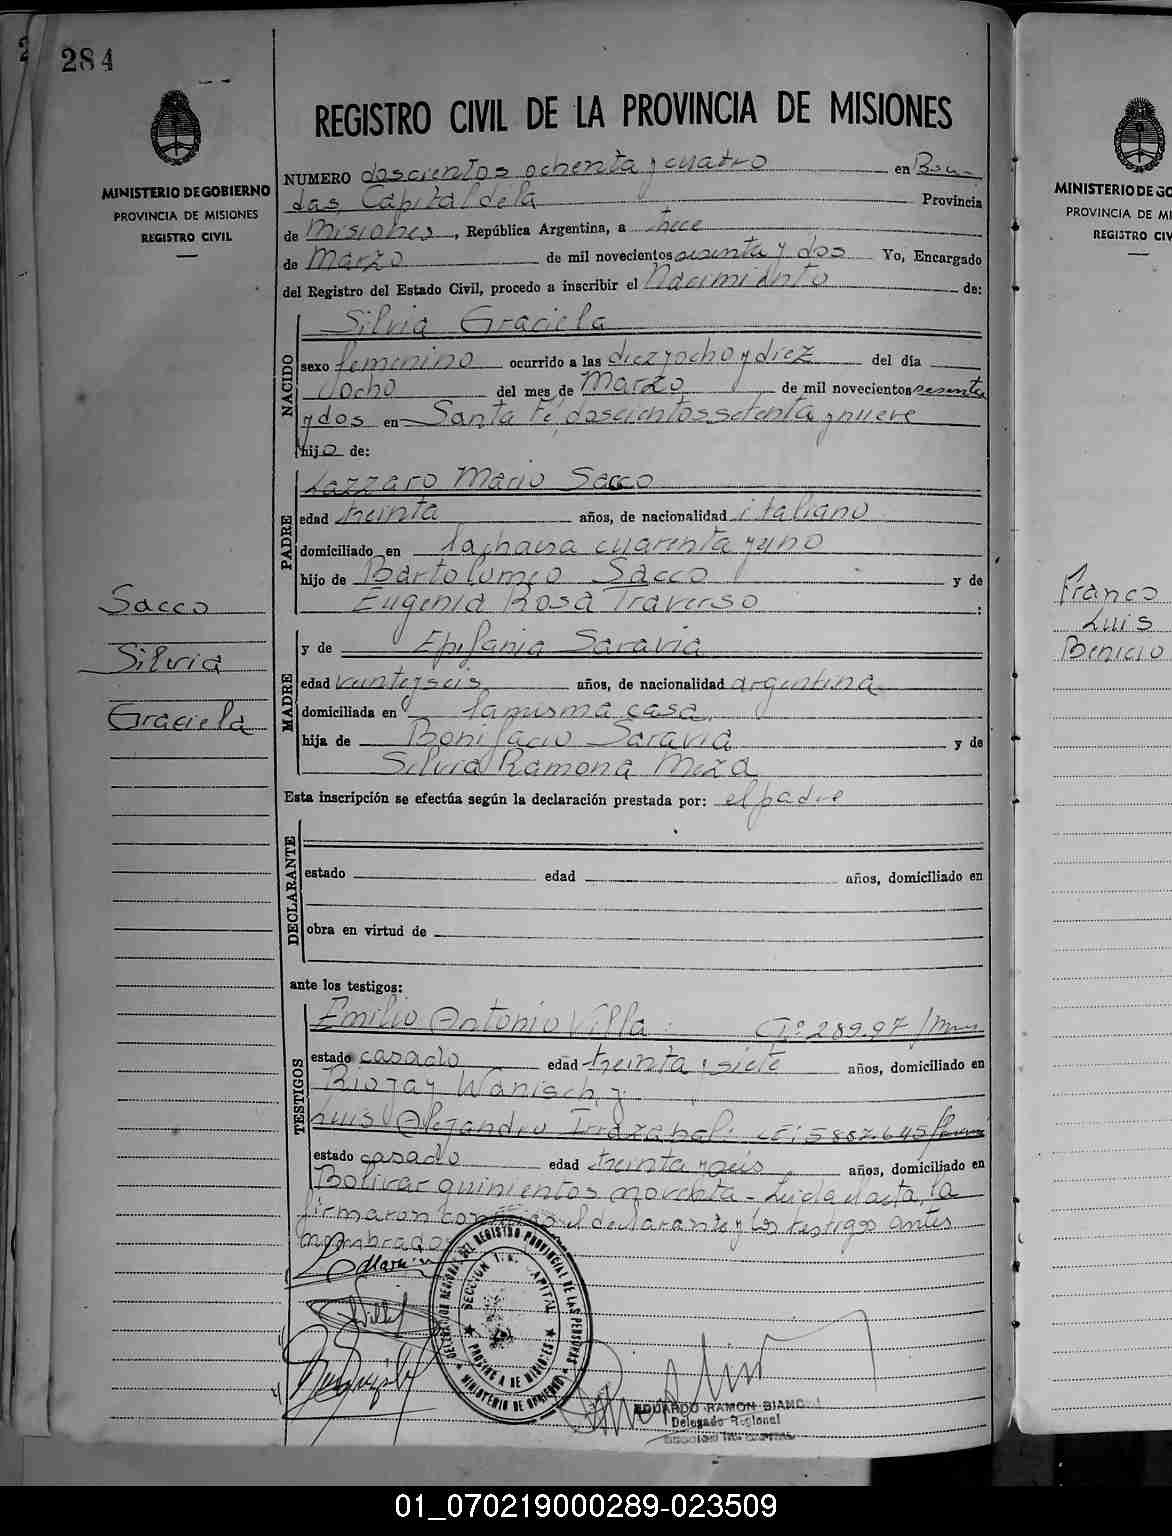 284
MINISTERIO DE GOBIERNO
PROVINCIA DE MISIONES
REGISTRO CIVIL
Sacco
Silvia
Graciela
REGISTRO CIVIL DE LA PROVINCIA DE MISIONES
NUMERO doscientos ochenta y cuatro en Posa-
das, Capital de la Provincia
de Misiones, República Argentina, a trece
de Marzo de mil novecientos sesenta y dos Yo, Encargado
del Registro del Estado Civil, procedo a inscribir el Nacimiento de:
NACIDO
Silvia Graciela
sexo femenino ocurrido a las diez y ocho y diez del día
ocho del mes de Marzo de mil novecientos sesenta
y dos en Santa Fe, doscientos setenta y nueve
hijo de:
PADRE
Lazzaro Mario Sacco
edad treinta años, de nacionalidad italiano
domiciliado en la chacra cuarenta y uno
hijo de Bartolomeo Sacco y de
Eugenia Rosa Traverso :
MADRE
y de Epifania Saravia
edad veinteyseis años, de nacionalidad argentina
domiciliada en la misma casa,
hija de Bonifacio Saravia y de
Silvia Ramona Meza
Esta inscripción se efectúa según la declaración prestada por: el padre
DECLARANTE
estado edad años, domiciliado en
obra en virtud de
ante los testigos:
TESTIGOS
Emilio Antonio Villa 289.97
estado casado edad treinta y siete años, domiciliado en
Rioja y Wanisch, y
Luis Alejandro Irrazabal LE: 5.887.645
estado casado edad treinta y seis años, domiciliado en
Bolivar quinientos noventa - Leida el acta, la
firmaron conmigo el declarante y los testigos antes
nombrados
DELEGACION REGIONAL DEL REGISTRO PROVINCIAL DE LAS PERSONAS
SECCION CAPITAL
PROVINCIA DE MISIONES
MINISTERIO DE GOBIERNO
EDUARDO RAMON BIANCHI
Delegado Regional
MINISTERIO DE GO
PROVINCIA DE MI
REGISTRO CIV
Franco
Luis
Benicio
01_070219000289-023509